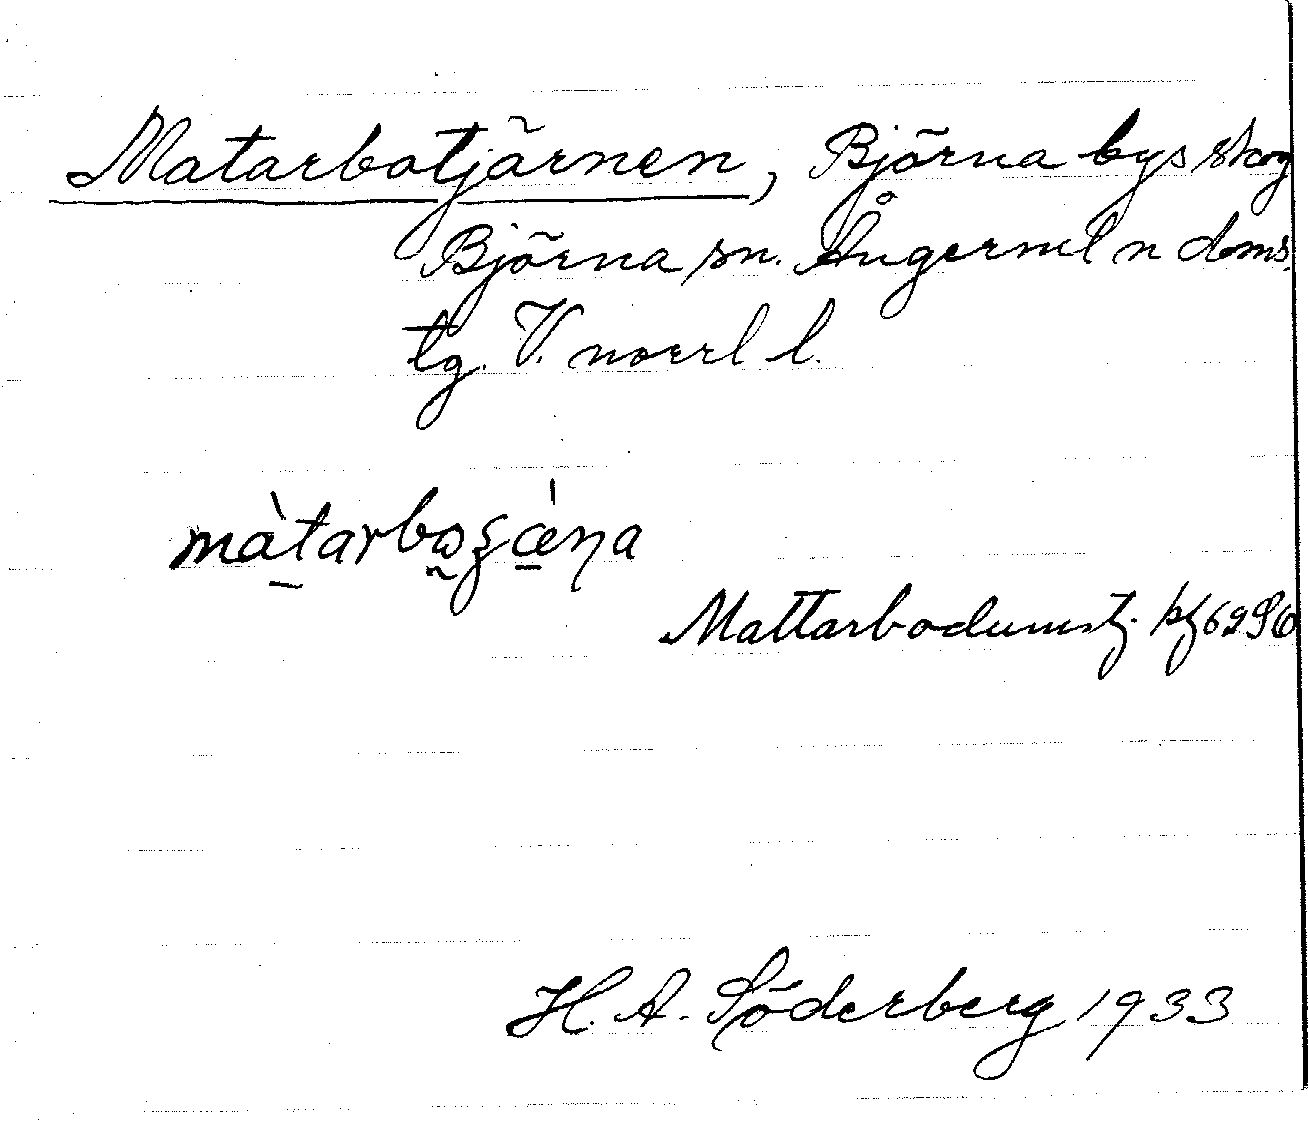 Matarbotjärnen, Björna bys skog
Björna sn. Ångerml n doms.
tg. V. norrl l.
màtarbo̰ʒǽɳa
Mattarbodumstj.
H. A. Söderberg 1933